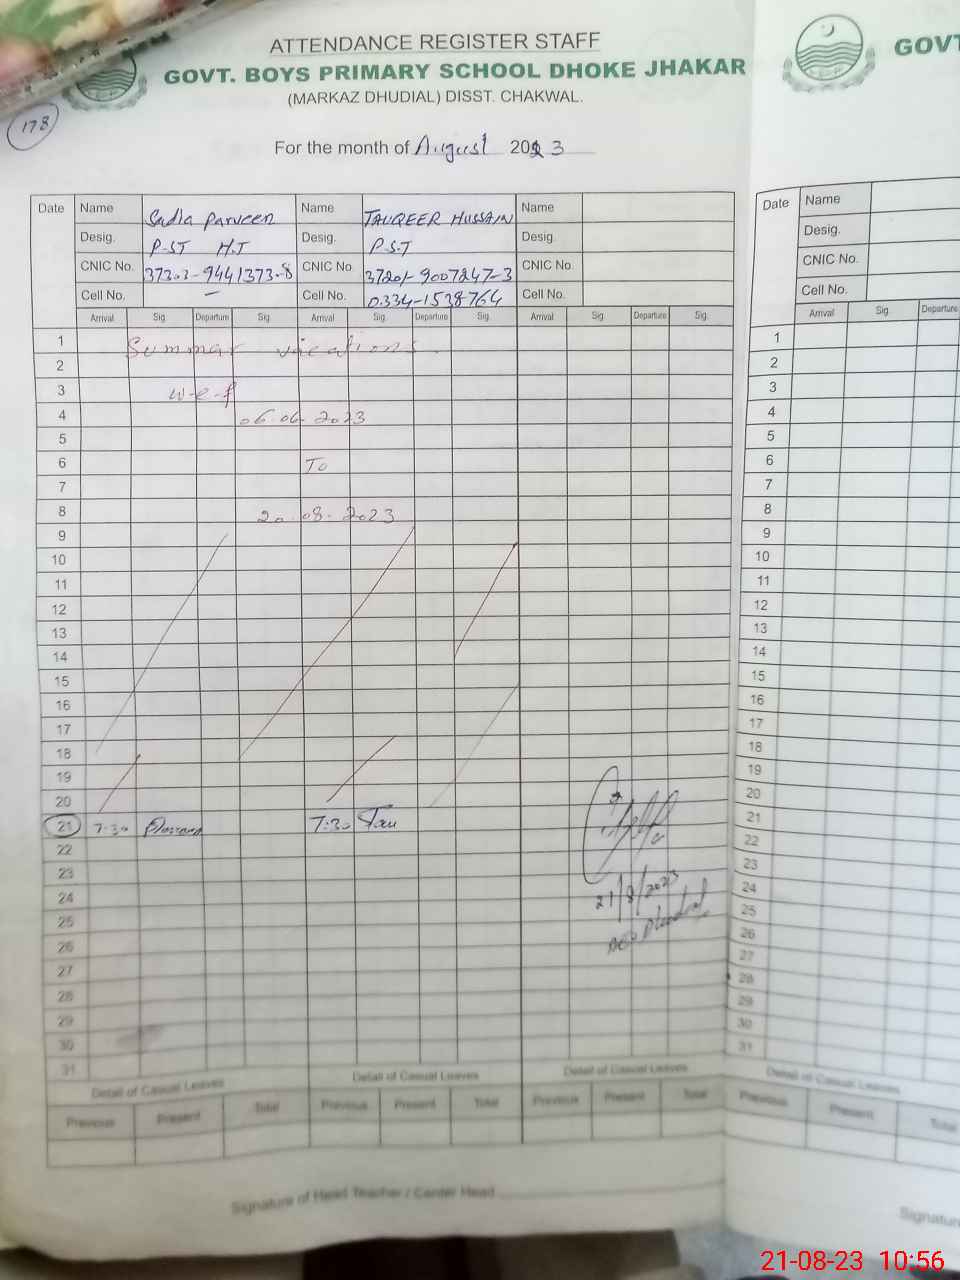 ATTENDANCE REGISTER STAFF
GOVT. BOYS PRIMARY SCHOOL DHOKE JHAKAR
(MARKAZ DHUDIAL) DISST. CHAKWAL.
178
For the month of August 2023
Date Name Sadia Parveen Name TAUQEER HUSSAIN Name
Desig. P.S.T H.T Desig. P.S.T Desig.
CNIC No. 37303-9441373-8 CNIC No. 37201-9007247-3 CNIC No.
Cell No. - Cell No. 0334-1538764 Cell No.
Arrival Sig. Departure Sig. Arrival Sig. Departure Sig. Arrival Sig. Departure Sig.
1 Summar vacations.
2
3 w-e-f
4 06.06-2023
5
6 To
7
8 20-08-2023
9
10
11
12
13
14
15
16
17
18
19
20
21 7:30 7:30 Tau
22
23
24
25
26
27
28
29
30
31
21/8/2023
Detail of Casual Leaves Detail of Casual Leaves Detail of Casual Leaves
Previous Present Total Previous Present Total Previous Present Total
Signature of Head Teacher / Center Head
GOVT
Date Name
Desig.
CNIC No.
Cell No.
Arrival Sig. Departure
1
2
3
4
5
6
7
8
9
10
11
12
13
14
15
16
17
18
19
20
21
22
23
24
25
26
27
28
29
30
31
Detail of Casual Leaves
Previous Present Total
Signature
21-08-23 10:56